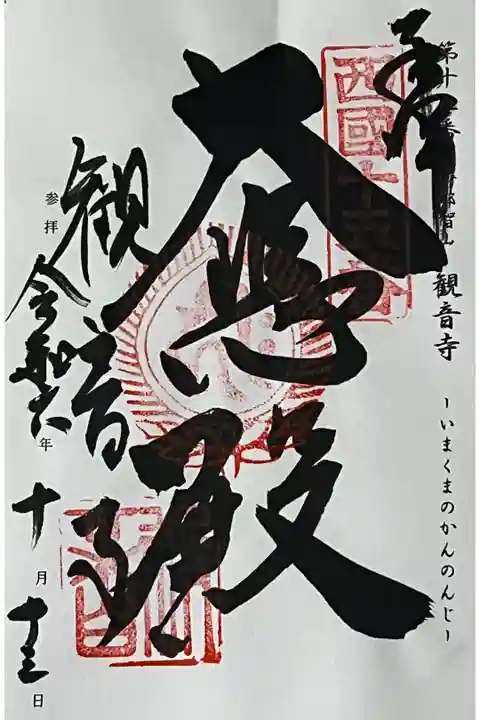 第十 番 智山 観音寺
-いまくまのかんのんじ-
奉
西國十五番
大悲殿
観音寺
参拝
令和六年
十月
十三日